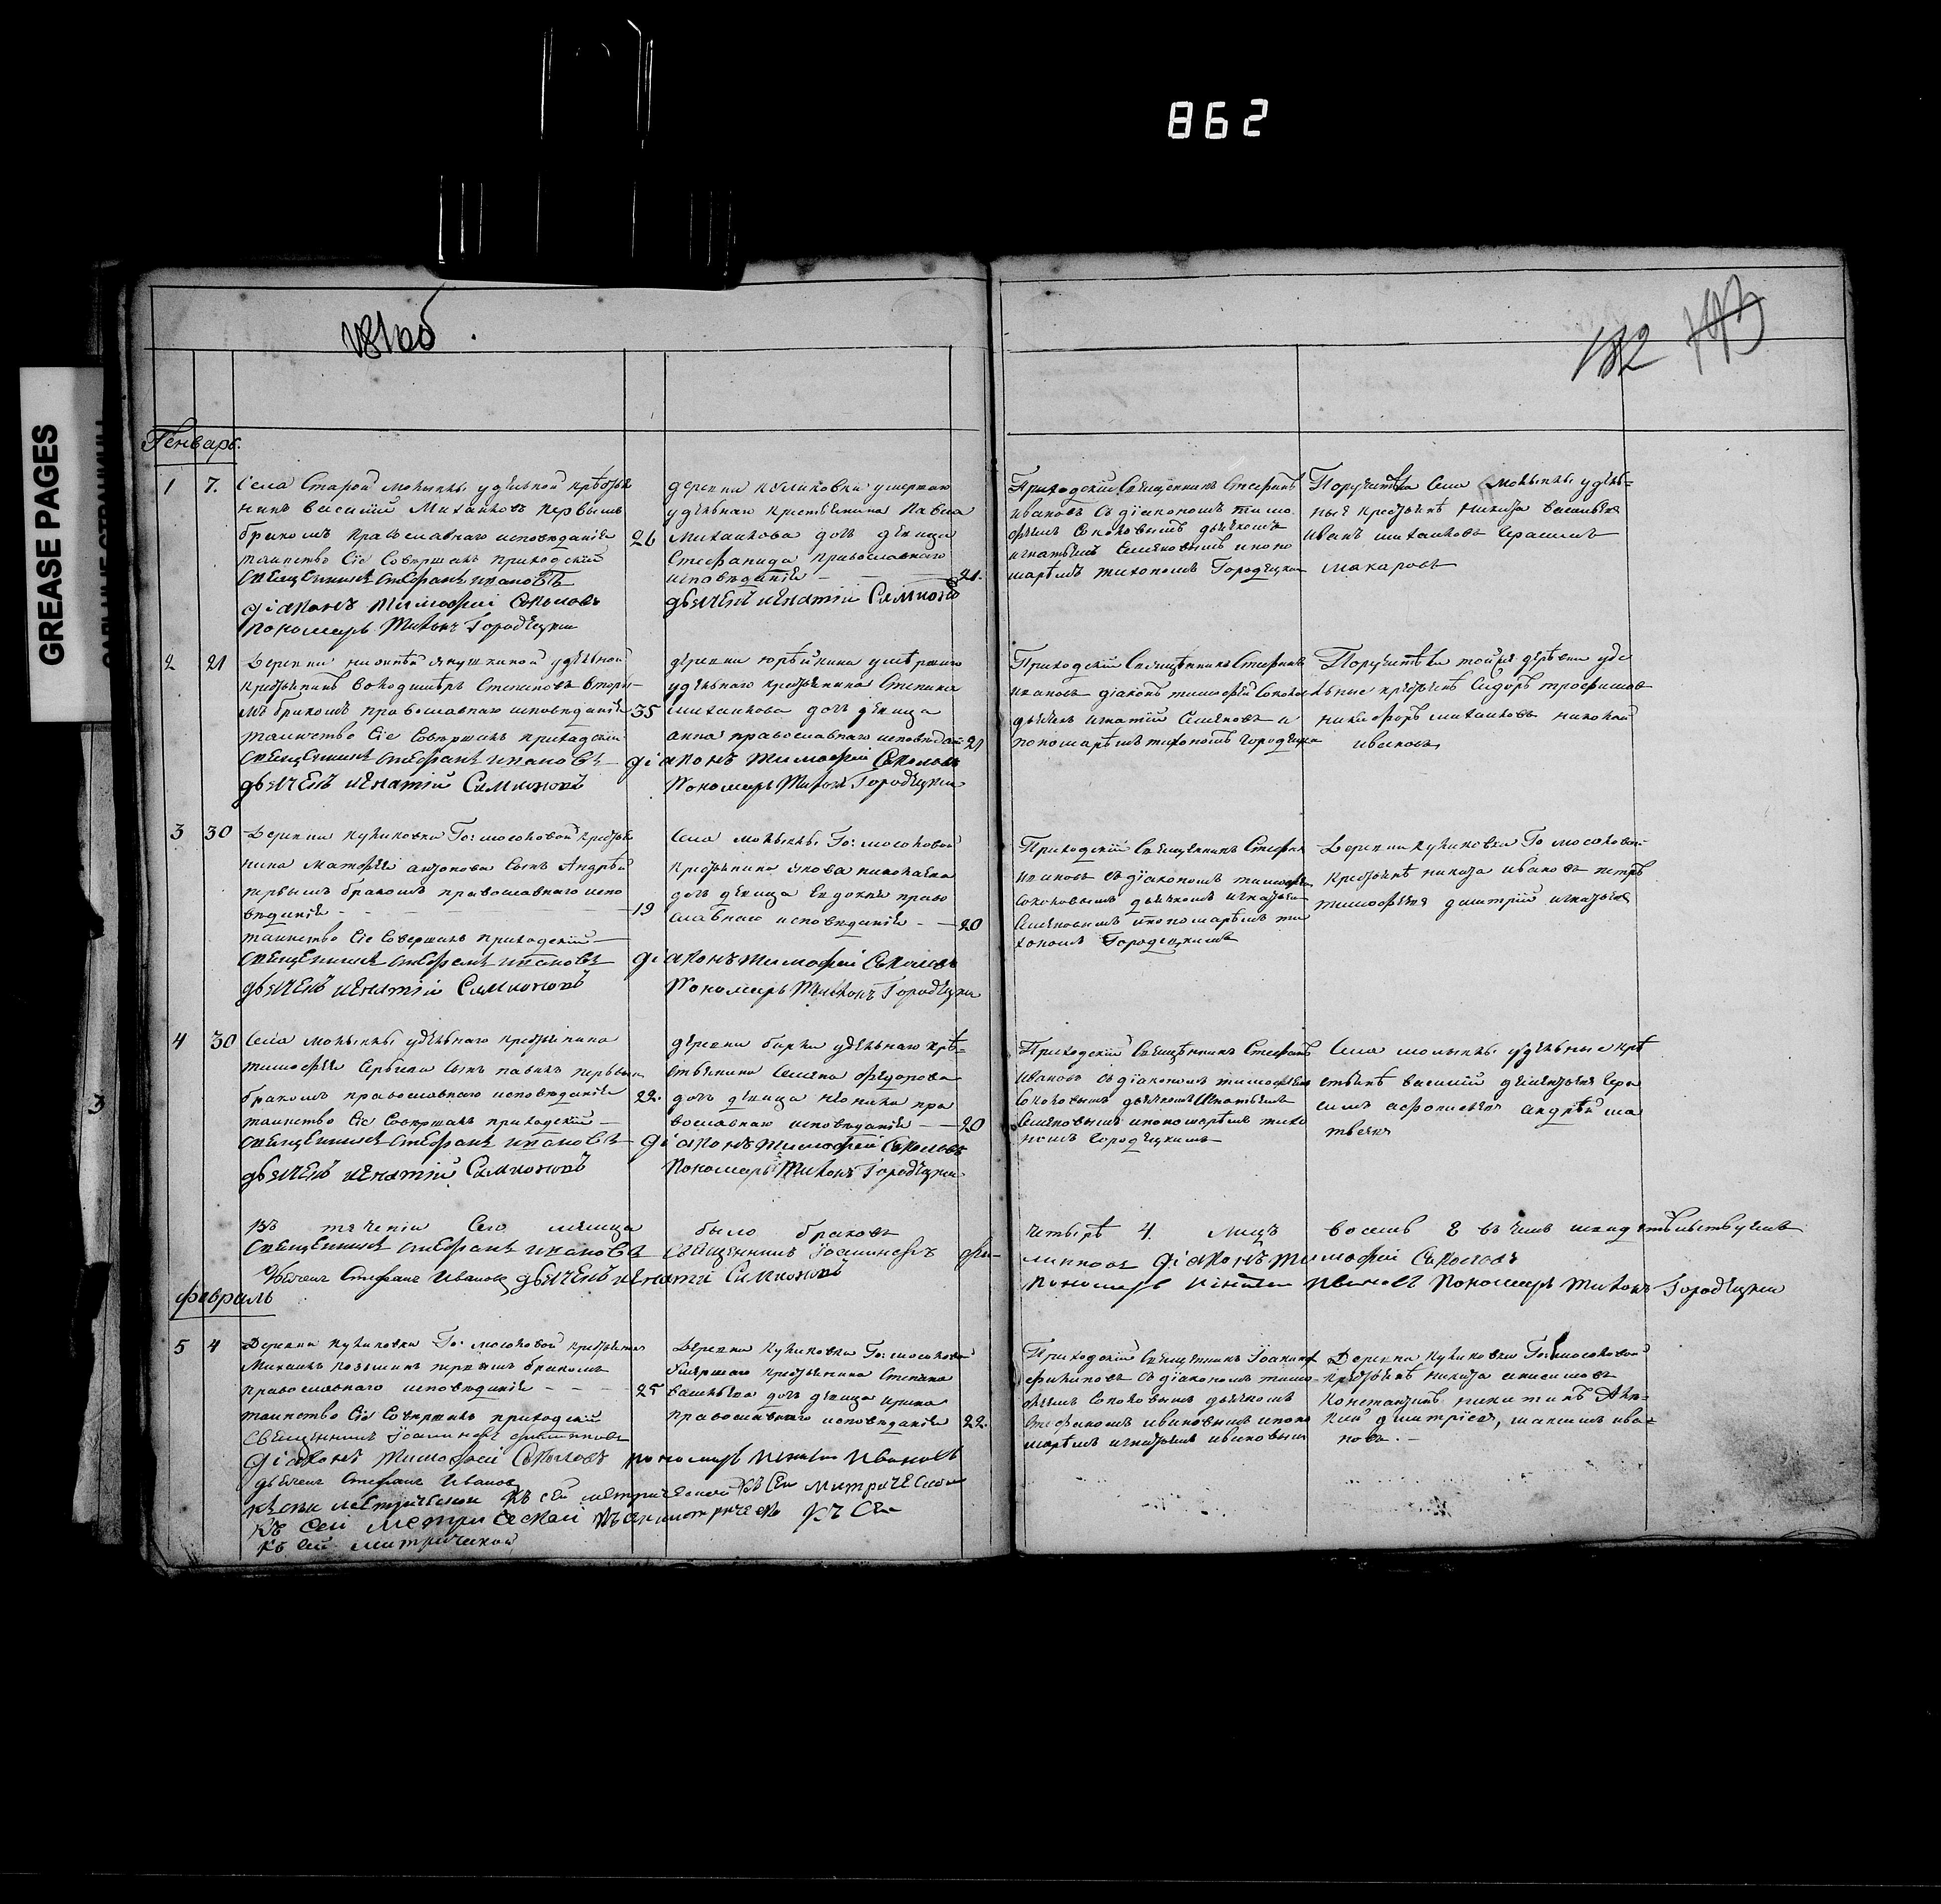 862
GREASE PAGES
181об.
182 193
Генварь.
1 7. Села Старой мокыкы удѣльной крестья
нинъ василий Михайловъ первымъ
бракомъ православнаго исповѣданія 26
таинство Сіе Совершалъ приходскій
священникъ стефанъ ивановъ
діаконъ тимофей Соколовъ
пономарь Тихонъ Городецкій
деревни куликовки умершаго
удѣльнаго крестьянина Павла
михайлова дочь дѣвица
Стефанида православнаго
исповѣданія 21.
дьячекъ игнатій Симионовъ
Приходский Священникъ Стефанъ
ивановъ съ діакономъ тимо
фѣемъ Соколовымъ дьячкомъ
игнатьемъ Семеновымъ и поно
марѣмъ тихономъ Городецким
удѣль=
ные крестьяне Никита васильев
иванъ михайловъ Герасимъ
макаровъ
2 21 Деревни удѣльной
крестьянинъ володимѣръ Степановъ вторы
мъ бракомъ православнаго исповѣданія 35
таинство Сіе Совершалъ приходскій
священникъ стефанъ ивановъ
дьячекъ игнатій Симионовъ
деревни юрѣйкина умѣршаго
удѣльнаго крестьянина Степана
михайлова дочь дѣвица
анна православнаго исповѣдан 21
діаконъ тимофей Соколовъ
Пономарь Тихонъ Городецкій
Приходский Священникъ Стефанъ
ивановъ діаконъ тимофей Соколов
дьячекъ игнатий Семеновъ и
пономарѣмъ тихономъ городецки
Поручители той же дѣревни удѣ
льные крестьяне Сидоръ трофимов
никифоръ михайловъ николай
ивановъ
3 30 Деревни куликовки Го: мосоловой крестья
нина матфея антонова Сынъ Андрѣй
первымъ бракомъ православнаго испо
вѣданія 19
таинство Сіе Совершалъ приходский
священникъ стефанъ ивановъ
дьячекъ игнатій Симионовъ
Села мокыкы Го: мосоловой
крестьянина якова николаева
дочь дѣвица Евдокия право
славнаго исповѣданія 20
діаконъ тимофей Соколовъ
Пономарь Тихонъ Городецки
Приходский Священникъ Стефан
ивановъ съ діакономъ тимофѣем
Соколовымъ дьячкомъ игнатьем
Семеновымъ и пономарѣмъ ти
хономъ Городецкимъ
Деревни куликовки Го мосоловой
крестьяне никита ивановъ петръ
тимофѣев дмитрий игнатьев
4 30 Села мокыкы удѣльнаго крестьянина
тимофѣя Сынъ павелъ первымъ
бракомъ православнаго исповѣданія 22.
таинство Сіе Совершалъ приходскій
священникъ стефанъ ивановъ
дьячекъ игнатій Симионовъ
деревни удѣльнаго кре=
стьянина Семена федорова
дочь дѣвица пра
вославнаго исповѣданія 20
діаконъ тимофей Соколовъ
Пономарь Тихонъ Городецки
Приходский Священникъ Стефанъ
Ивановъ съ діакономъ тимофѣем
Соколовымъ дьячкомъ Игнатьемъ
Семеновымъ и пономарѣмъ тихо
номъ Городецкимъ
Села мокыкы удѣльные кре
стьяне василий Гера
симъ андрѣй ма
твеев
въ теченіи Сего месеца было браковъ четырѣ 4. лицъ восемь 8 въ чемъ и свидѣтѣльствуемъ
священникъ стефанъ ивановъ Священникъ Іоанникъ фи-
липповъ діаконъ тимофей Соколовъ
дьячекъ Стефанъ Ивановъ дьячекъ игнатій Симионовъ
пономарь игнатей Ивановъ Пономарь Тихонъ Городецки
февраль
5 4 Деревни куликовки Го: мосоловой крестьянинъ
Михаилъ первымъ бракомъ
православнаго исповѣданія 25
таинство Сіе Совершалъ приходскій
Священникъ Іоанникъ филипповъ
діаконъ Тимофей Соколовъ пономарь игнатей Ивановъ
дьячекъ Стефанъ Ивановъ
Деревни куликовки Го: мосоловой
умершаго крестьянина Степана
васильева дочь дѣвица ирина
православнаго исповѣданія 22.
Приходский Священникъ Іоанник
филиповъ съ діакономъ тимо
фѣемъ Соколовымъ дьячкомъ
Стефаномъ ивановымъ и поно
марѣмъ игнатьемъ ивановым
Деревни куликовки Го: мосоловой
крестьяне никита анисимовъ
Константинъ никитинъ Але=
ксѣй дмитріев, максимъ ива=
новъ.
къ сей метрической къ сей метрической къ сей метрической
къ сей метрической къ сей метрической къ сей
къ сей метрической